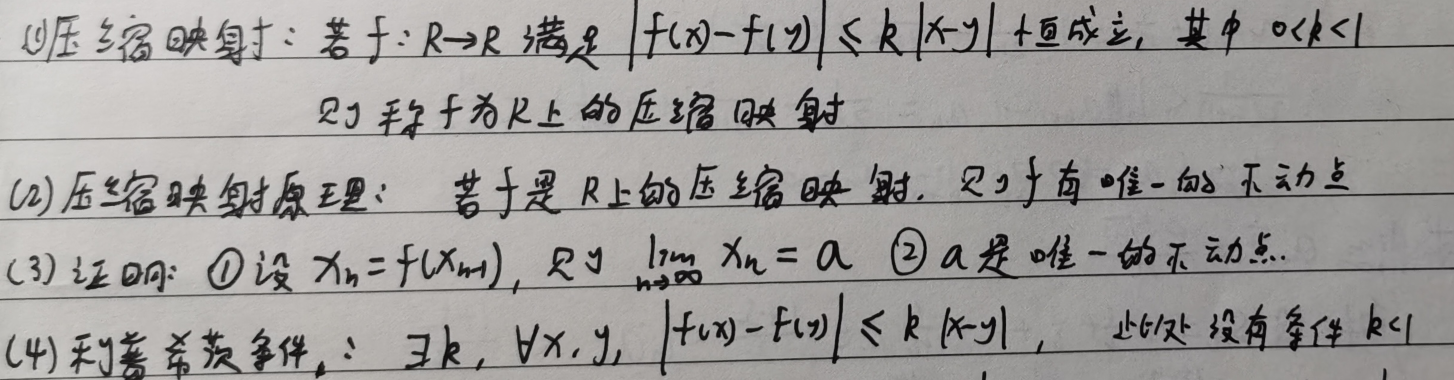 (1)压缩映射：若f:R→R 满足 |f(x)-f(y)|≤k|x-y| 恒成立，其中 0<k<1
则称f为R上的压缩映射
(2)压缩映射原理： 若f是R上的压缩映射，则f有唯一的不动点
(3)证明：①设 xₙ=f(xₙ₋₁)，则 lim n→∞ xₙ=a ②a是唯一的不动点.
(4)利普希茨条件：∃k，∀x,y，|f(x)-f(y)|≤k|x-y|， 此处没有条件k<1